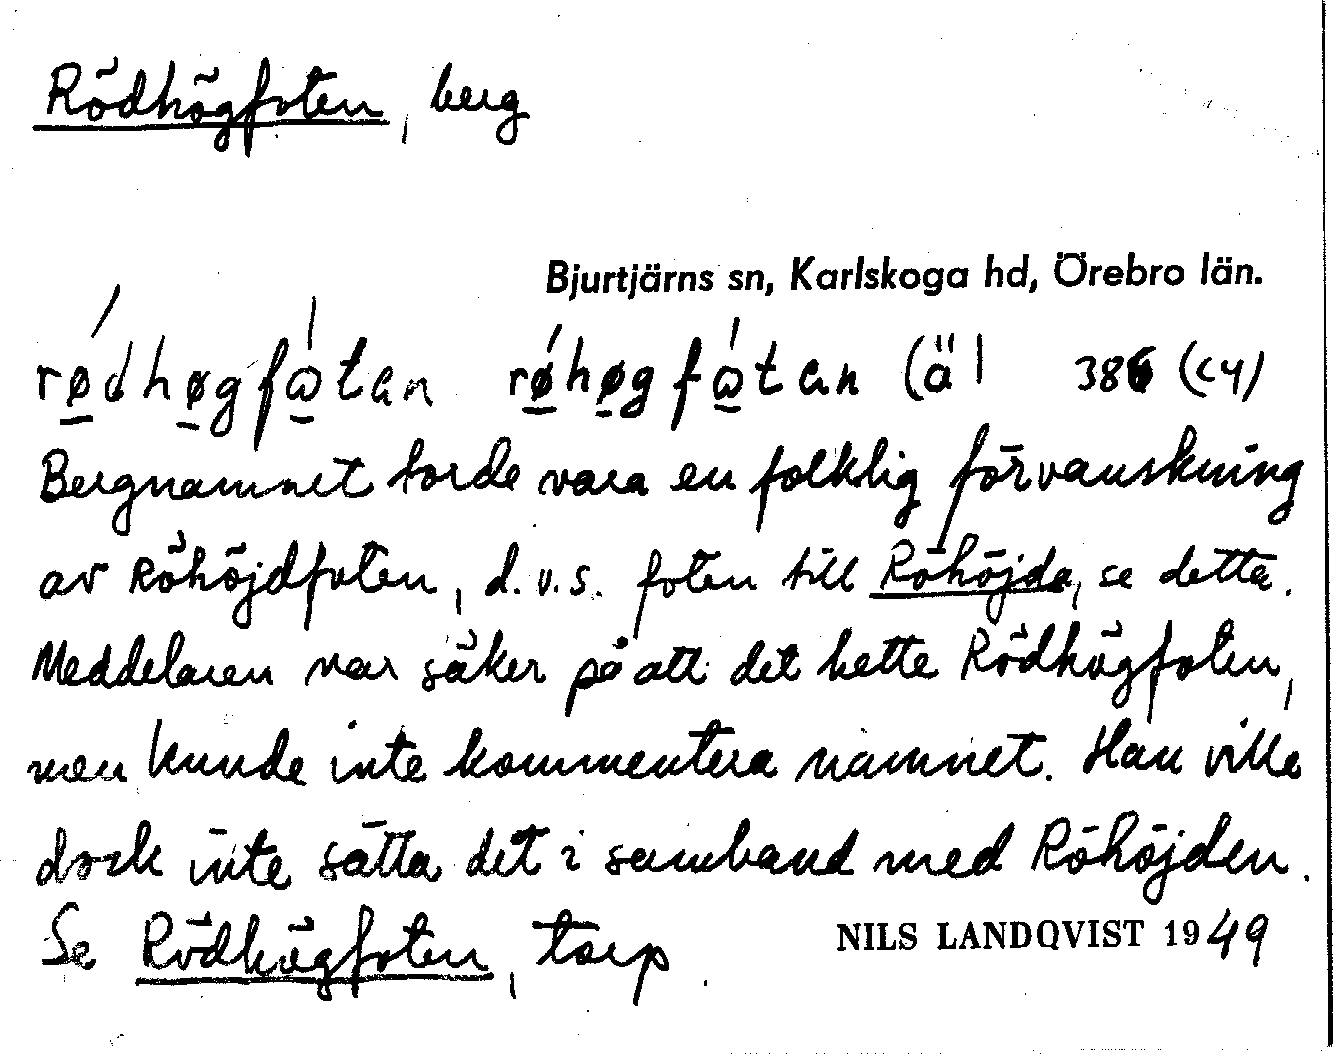 Rödhögfoten, berg
Bjurtjärns sn, Karlskoga hd, Örebro län.
rødhøgfωtan røhøgfωtan (äl 386 (c4)
Bergnamnet torde vara en folklig förvanskning
av Röhöjdfoten, d.v.s. foten till Röhöjda, se detta.
Meddelaren var säker på att det hette Rödhögfoten,
men kunde inte kommentera namnet. Han ville
dock inte sätta det i samband med Röhöjden.
Se Rödhögfoten, torp.
NILS LANDQVIST 1949